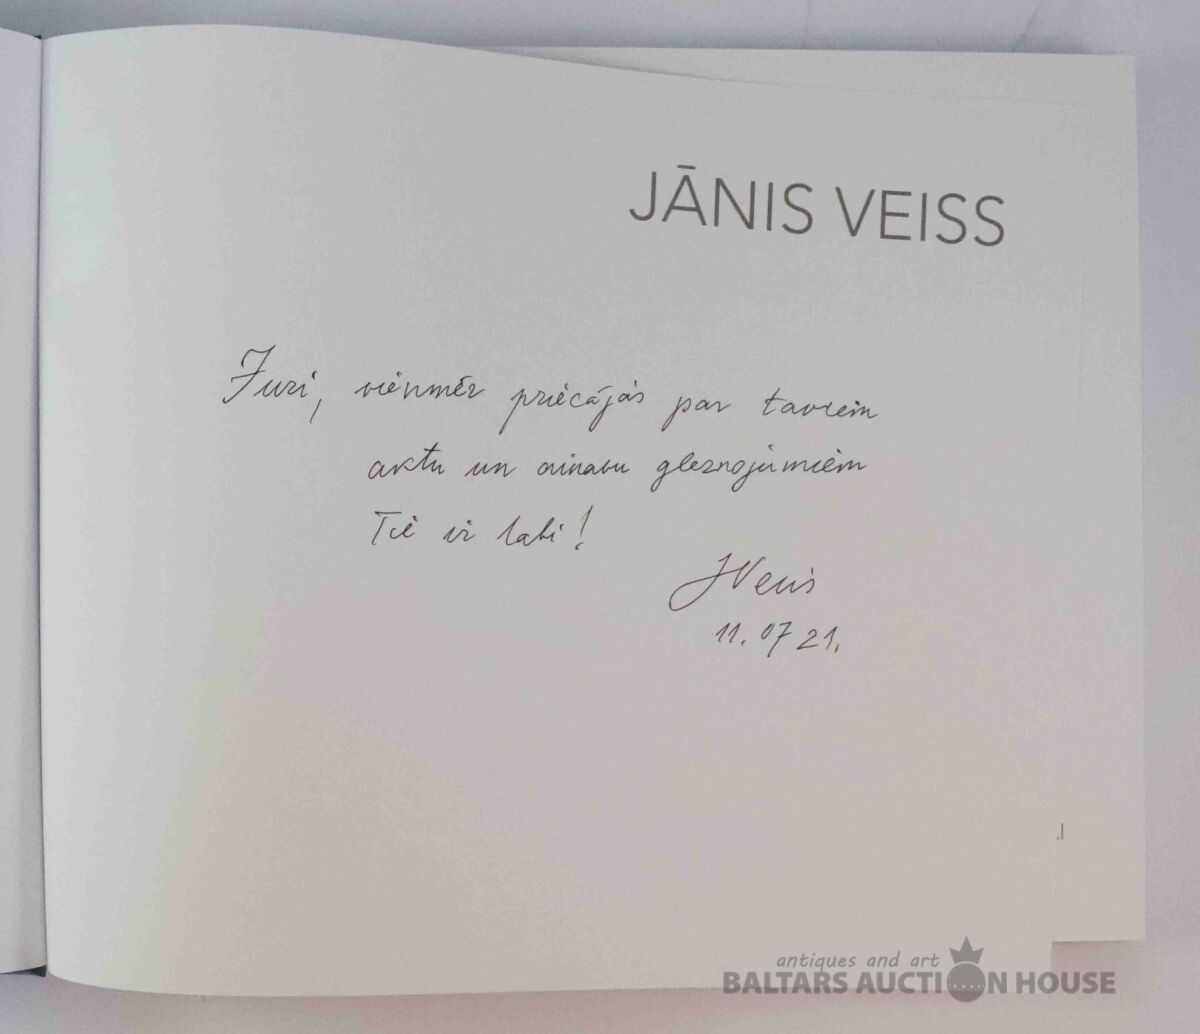 JĀNIS VEISS
Juri, vienmēr priecājās par taviem
aktu un ainavu gleznojumiem
Tie ir labi!
JVeiss
11.07 21.
antiques and art
BALTARS AUCTION HOUSE